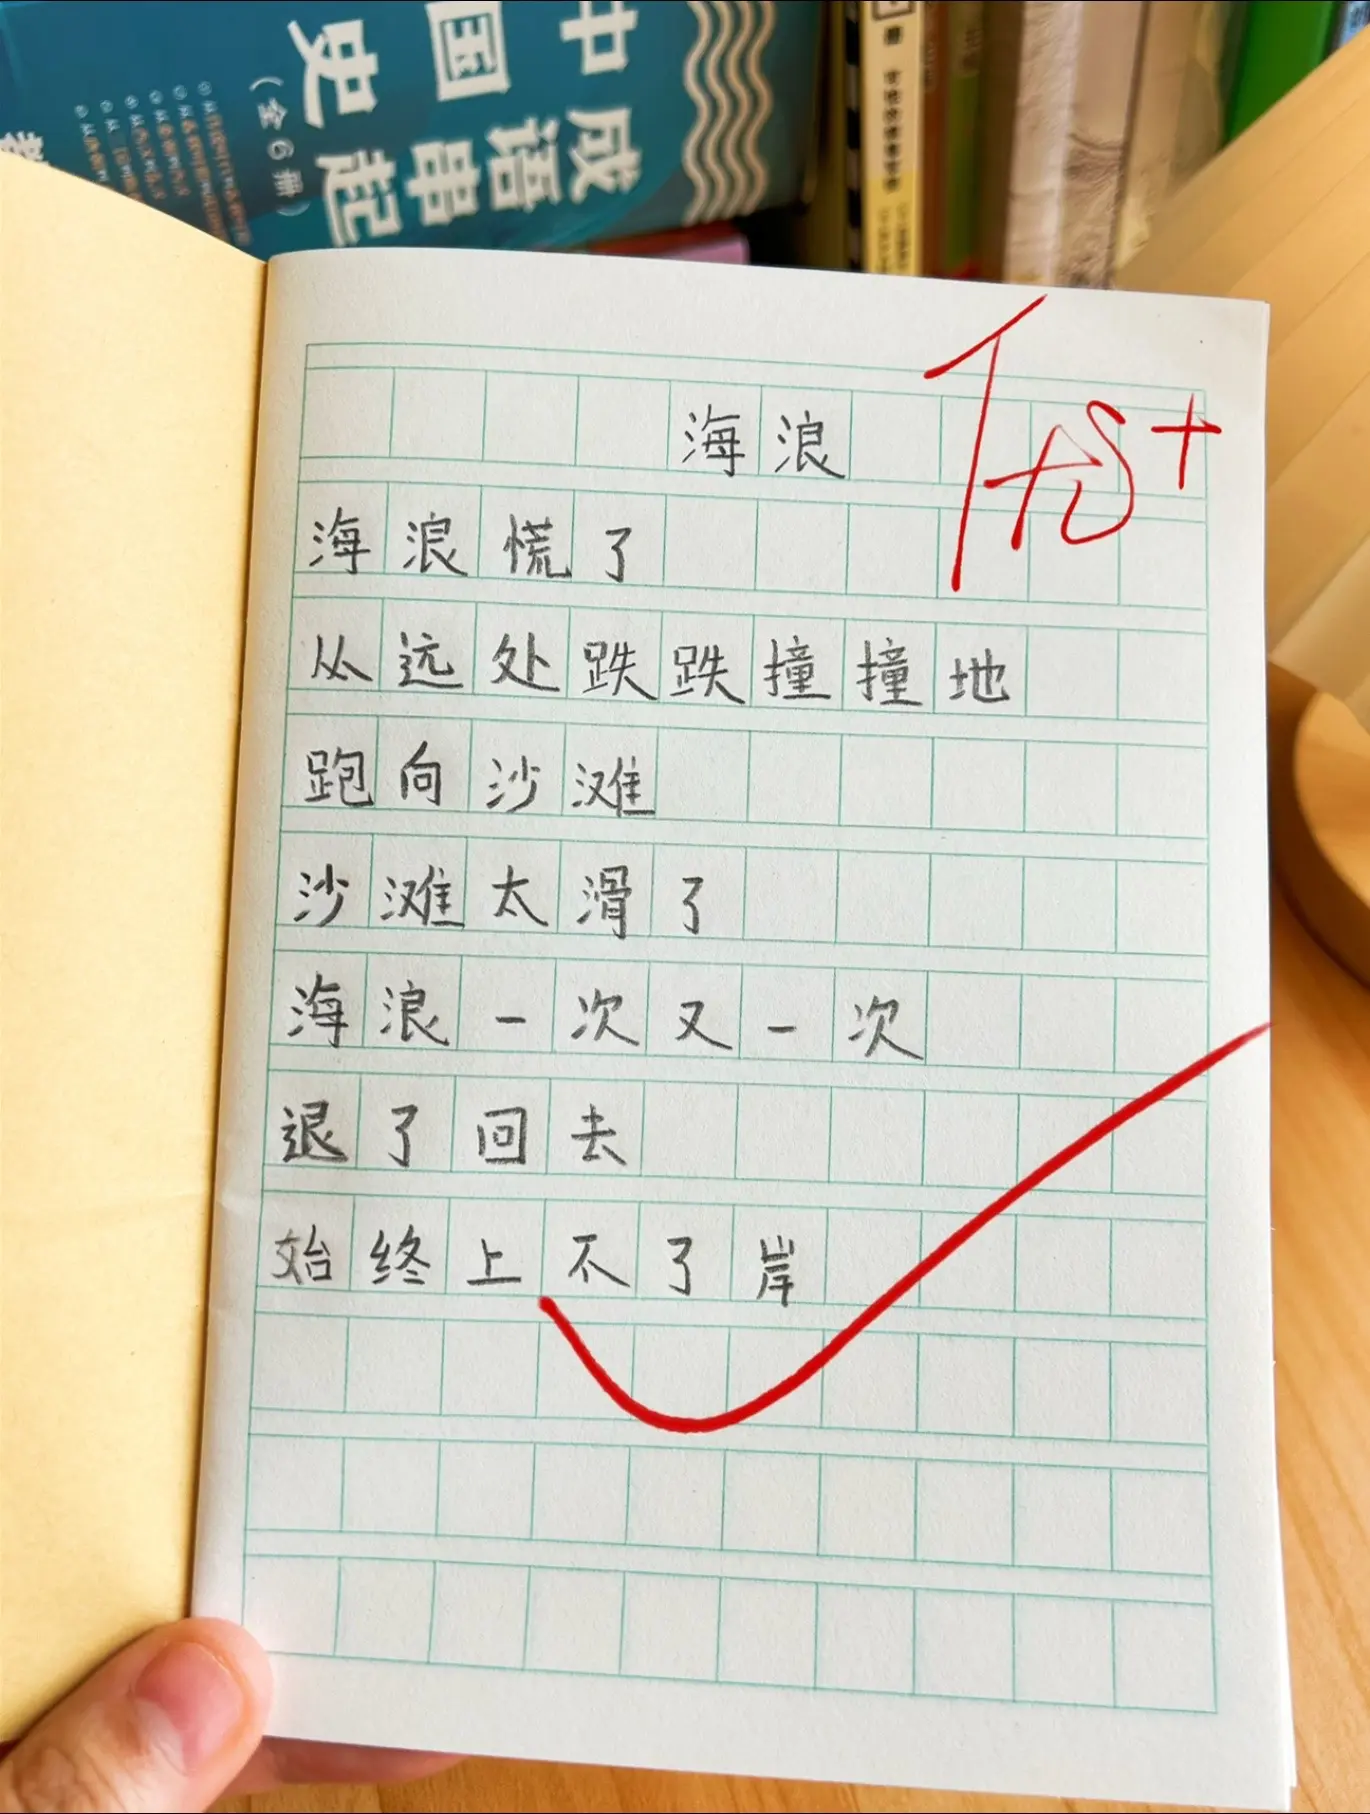 成语串起
中国史
（全6册）
海浪
海浪慌了
从远处跌跌撞撞地
跑向沙滩
沙滩太滑了
海浪一次又一次
退了回去
始终上不了岸